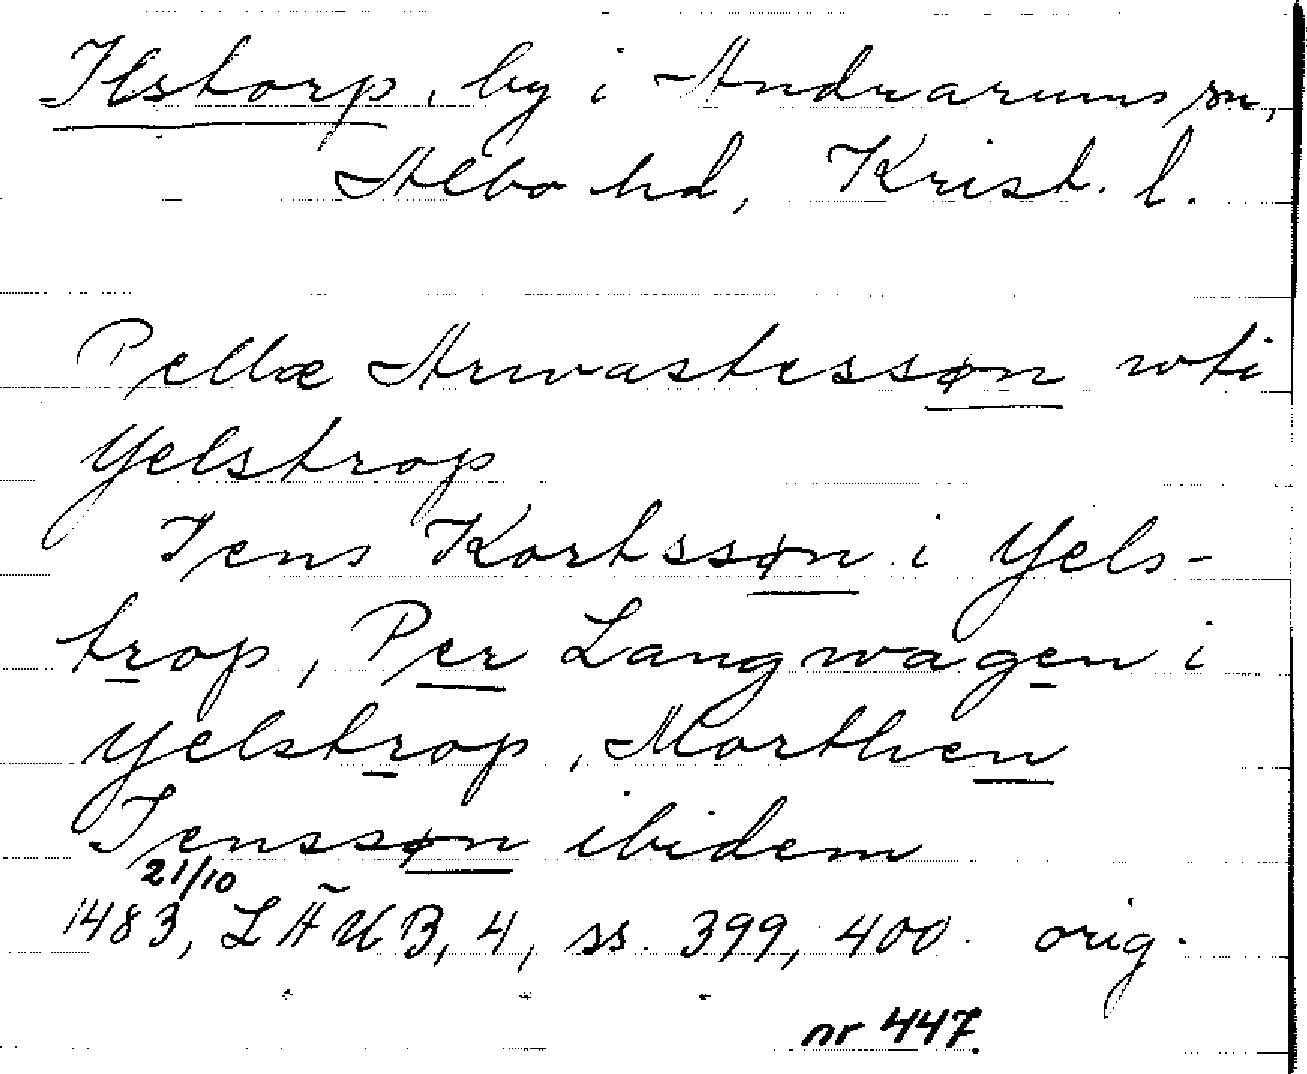 Ilstorp, by i Andrarums sn,
Albo hd, Krist. l.
Pellæ Arwastessøn wti
Yelstrop
Jens Kortssøn i Yels-
trop, Per Langwagen i
Yelstrop, Morthen
Jenssøn ibidem
21/10
1483, LÄUB, 4, ss. 399, 400. orig.
nr 447.